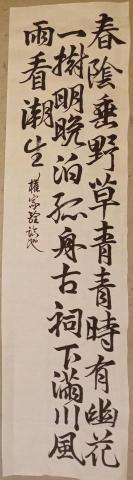 春陰垂野草青青時有幽花
一樹明晚泊孤舟古祠下滿川風
雨看潮生